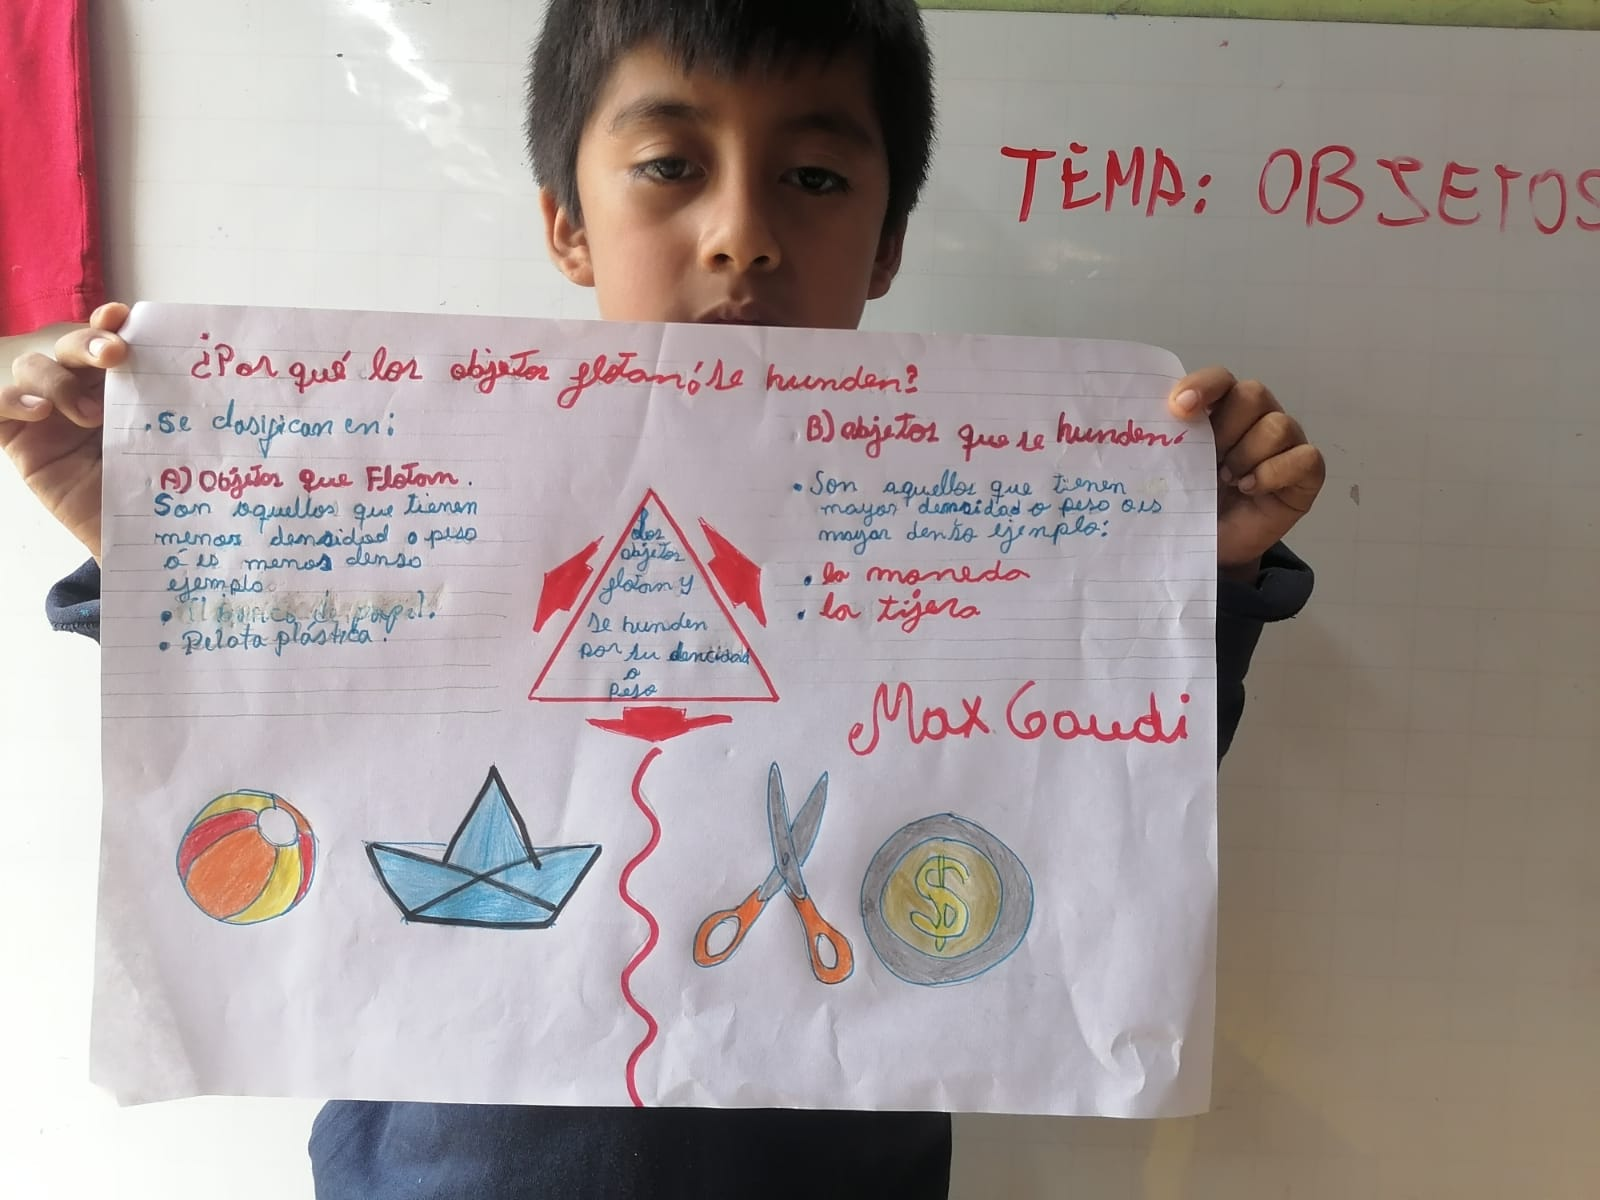 TEMA: OBJETOS
¿Por qué los objetos flotan ó se hunden?
. Se clasifican en:
A) Objetos que Flotan.
Son aquellos que tienen
menor densidad o peso
ó es menos denso
ejemplo
• El barco de papel.
• Pelota plástica.
Los
objetos
flotan y
se hunden
por su dencidad
o
peso
B) objetos que se hunden.
• Son aquellos que tienen
mayor densidad o peso o es
mayor denso ejemplo:
• la moneda
• la tijera
Max Gaudi
$